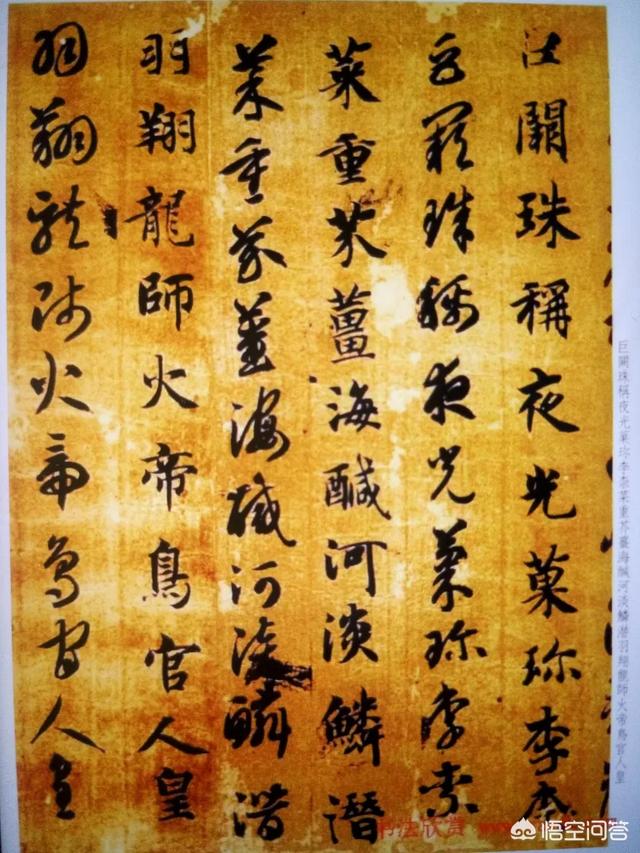 巨闕珠稱夜光菓珎李柰菜重芥薑海鹹河淡鱗潛羽翔龍師火帝鳥官人皇
巨闕珠稱夜光菓珎李柰
巨闕珠稱夜光菓珎李柰
菜重芥薑海鹹河淡鱗潛
菜重芥薑海鹹河淡鱗潛
羽翔龍師火帝鳥官人皇
羽翔龍師火帝鳥官人皇
书法欣赏
悟空问答